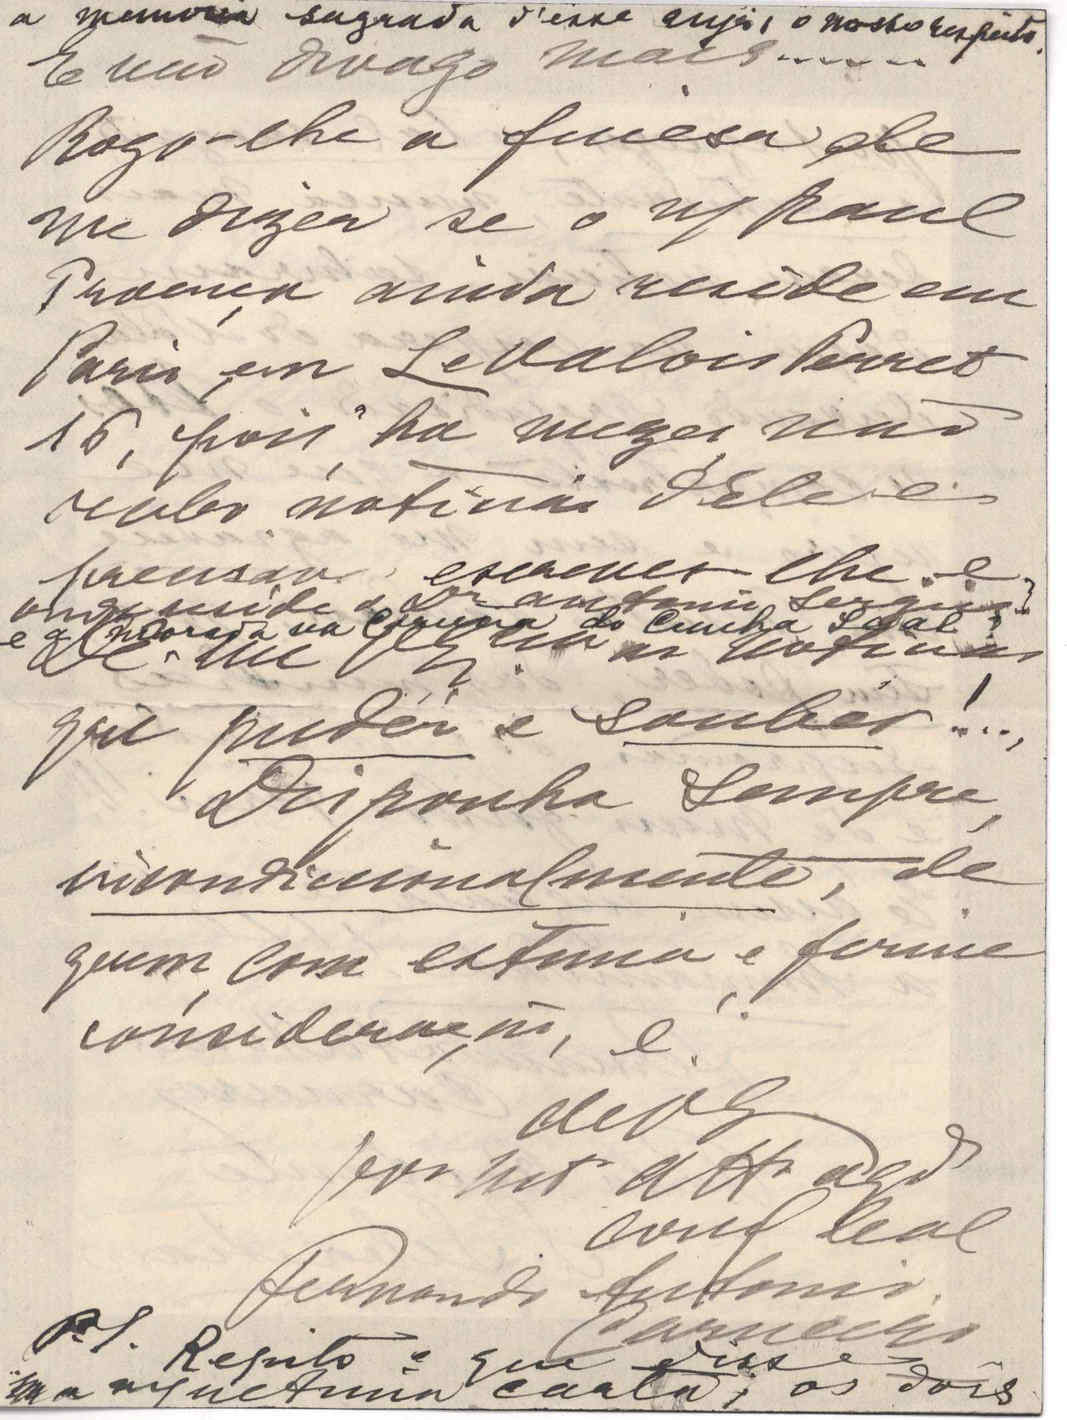 a memoria sagrada d'esse anjo, o nosso respeito.
E não divago mais......
Rogo-lhe a finesa de
me dizer se o Raul
Proença ainda reside em
Paris, em LeValois Perret
16, pois, ha mezes, não
recebo noticias d'Ele e
precisava escrever-lhe. e
onde reside o Dr Antonio Sergio?
e a morada na Coruna do Cunha Leal?
Dê-me as noticias
que pudér e soubér!..,
Disponha sempre,
incondicionalmente, de
quem, com estima e firme
consideração, é.
de V.
por mto atto agdo
leal
Fernando Antonio
Carneiro
P.S. Repito o que disse
na carta; os dois